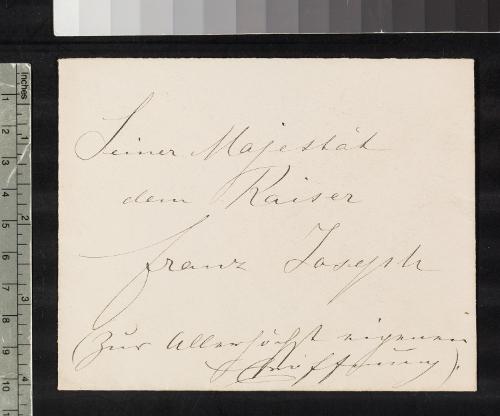 Seiner Majestät
dem Kaiser
Franz Joseph
(Zur Allerhöchst eigenen
Eröffnung).
inches
1
2
3
4
5
6
7
8
9
10
1
2
3
4